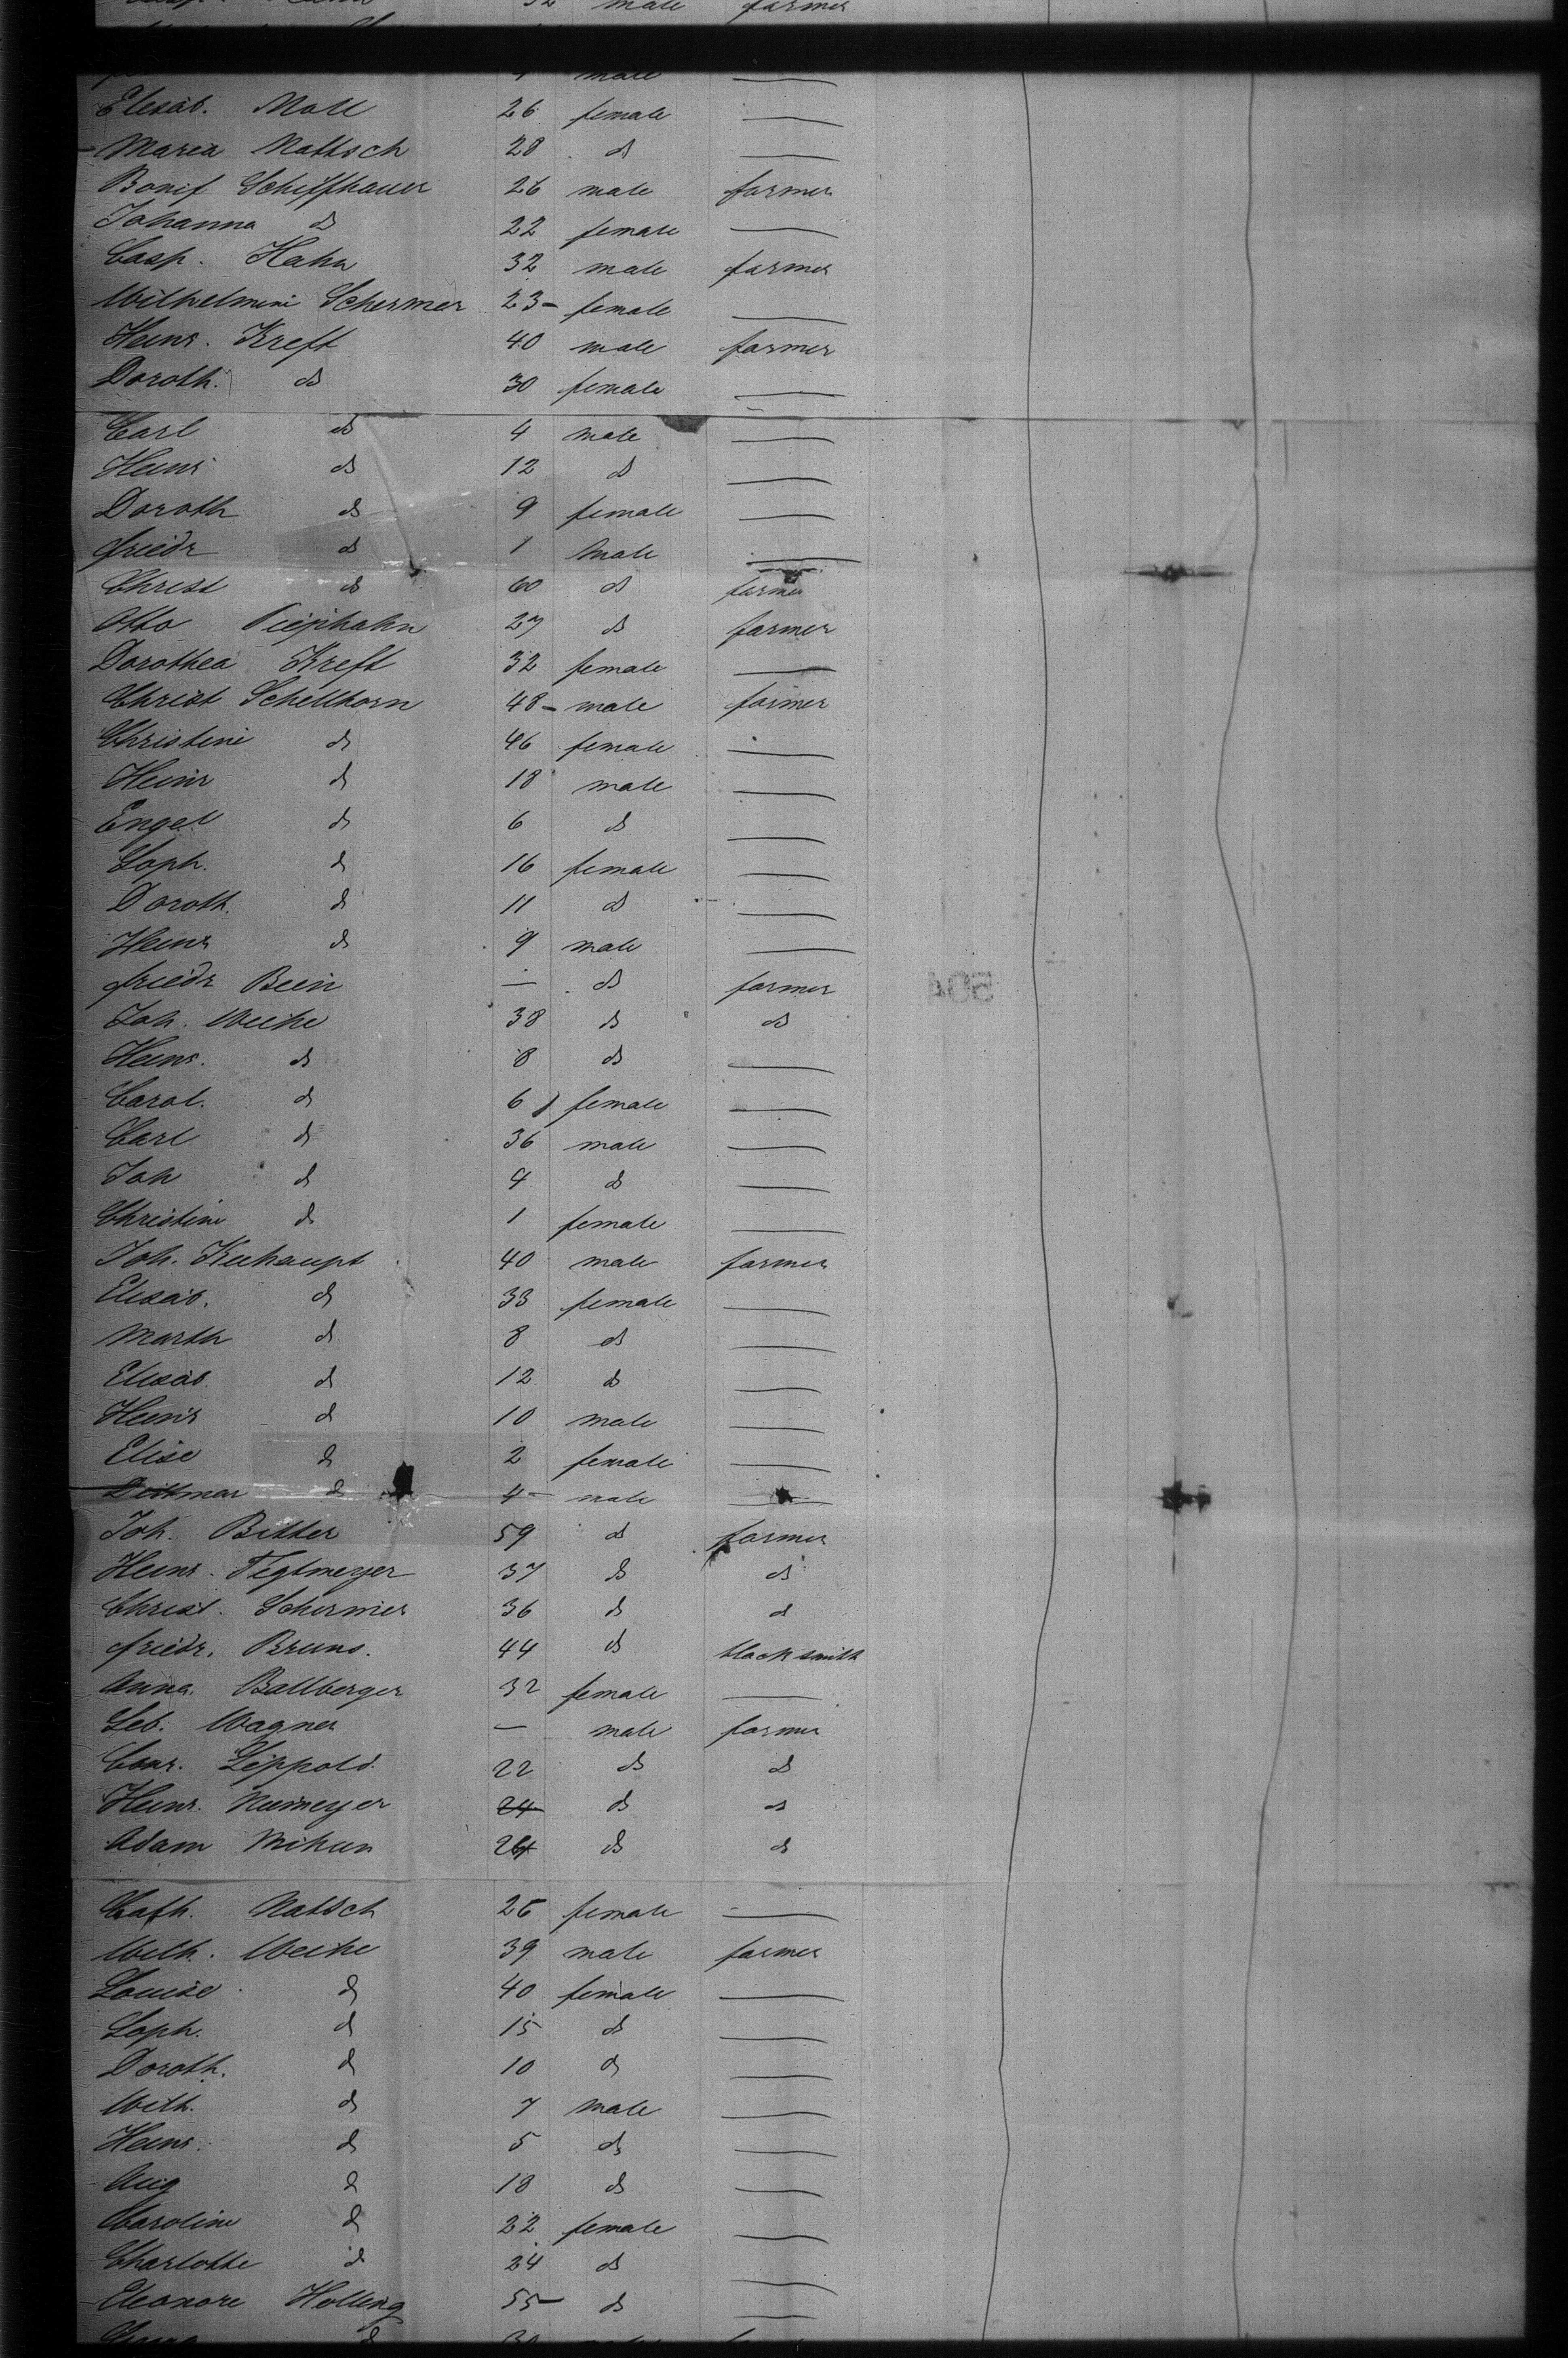 32 male farmer
male —
Elisab. Moll 26 female —
Maria Nattsch 28 do —
Bonif Schiffhauer 26 male farmer
Johanna do 22 female —
Casp. Hahn 32 male farmer
Wilhelmine Schermer 23 – female —
Heinr. Kreft 40 male farmer
Doroth. do 30 female —
Carl do 4 male —
Heinr do 12 do —
Doroth do 9 female —
friedr do 1 male —
Christ do 60 do farmer
Otto Piephahn 27 do farmer
Dorothea Kreft 32 female —
Christ Schellhorn 48 – male farmer
Christine do 46 female —
Heinr do 18 male —
Engel do 6 do —
Soph. do 16 female —
Doroth. do 11 do —
Heinr do 9 male —
friedr Bein — do farmer
Joh. Weihe 38 do do
Heinr. do 8 do —
Carol. do 6 female —
Carl do 36 male —
Joh do 4 do —
Christine do 1 female —
Joh. Kuhaupt 40 male farmer
Elisab. do 33 female —
Marth do 8 do —
Elisab do 12 do —
Heinr do 10 male —
Elise do 2 female —
Dittmar do 4 – male —
Joh. Bitter 59 do farmer
Heinr. Tegtmeyer 37 do do
Christ. Schermer 36 do do
friedr. Bruns. 44 do black smith
Anna Ballberger 32 female —
Seb. Wagner — male farmer
Conr. Leppold 22 do do
Heinr. Niemeyer 24 do do
Adam 24 do do
Cath. Natsch 25 female —
Wilh. Weihe 39 male farmer
Louise do 40 female —
Soph. do 15 do —
Doroth. do 10 do —
Wilh. do 7 male —
Heinr. do 5 do —
Aug do 18 do —
Caroline do 22 female —
Charlotte do 24 do —
Eleonore Holling 55 – do —